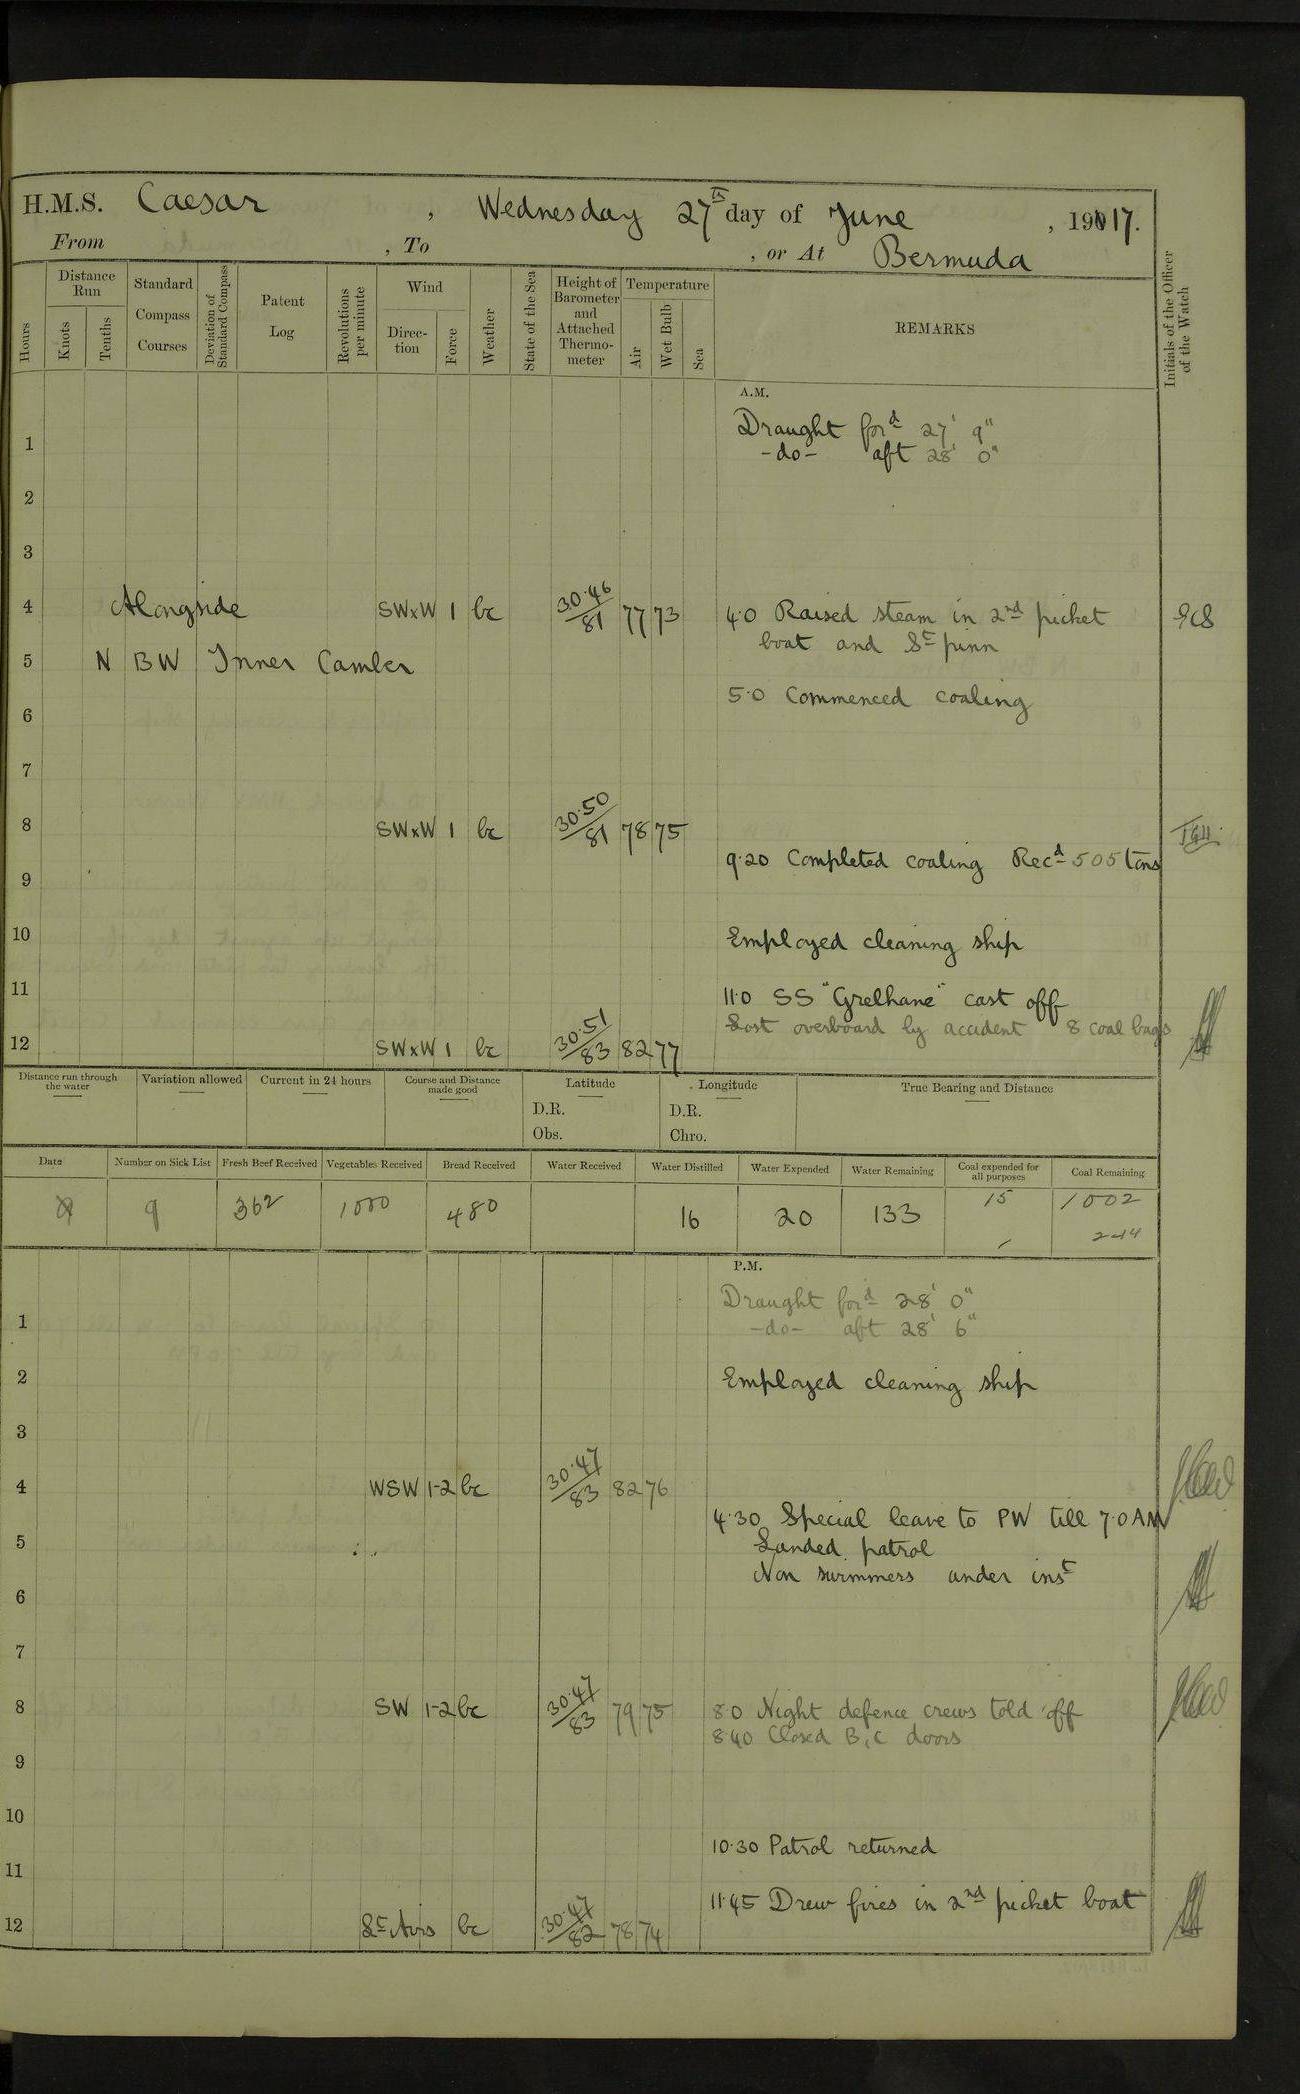 H.M.S. Caesar , Wednesday 27th day of June , 1917.
From , To , or At Bermuda
Hours
Distance Run
Knots
Tenths
Standard Compass Courses
Deviation of Standard Compass
Patent Log
Revolutions per minute
Wind
Direction
Force
Weather
State of the Sea
Height of Barometer and Attached Thermometer
Temperature
Air
Wet Bulb
Sea
REMARKS
Initials of the Officer of the Watch
A.M.
Draught ford 27' 9"
1
-do- aft 28' 0"
2
3
4 Alongside SWxW 1 bc 30.46/81 77 73 4.0 Raised steam in 2nd picket
boat and St pinn
5 N BW Inner Camber
5.0 Commenced coaling
6
7
8 SWxW 1 bc 30.50/81 78 75
9.20 Completed coaling Recd 505 tons
9
10 Employed cleaning ship
11 11.0 SS "Grelhane" cast off
Lost overboard by accident 8 coal bags
12 SWxW 1 bc 30.51/83 82 77
Distance run through the water
Variation allowed
Current in 24 hours
Course and Distance made good
Latitude
D.R.
Obs.
Longitude
D.R.
Chro.
True Bearing and Distance
Date Number on Sick List Fresh Beef Received Vegetables Received Bread Received Water Received Water Distilled Water Expended Water Remaining Coal expended for all purposes Coal Remaining
9 362 1000 480 16 20 133 15 1002
P.M.
Draught ford 28' 0"
1 -do- aft 28' 6"
2 Employed cleaning ship
3
4 WSW 1-2 bc 30.47/83 82 76
4.30 Special leave to PW till 7.0 AM
5 Landed patrol
Non swimmers under inst
6
7
8 SW 1-2 bc 30.47/83 79 75 8.0 Night defence crews told off
8.40 Closed B,C doors
9
10
10.30 Patrol returned
11
11.45 Drew fires in 2nd picket boat
12 Lt Airs bc 30.47/82 78 74